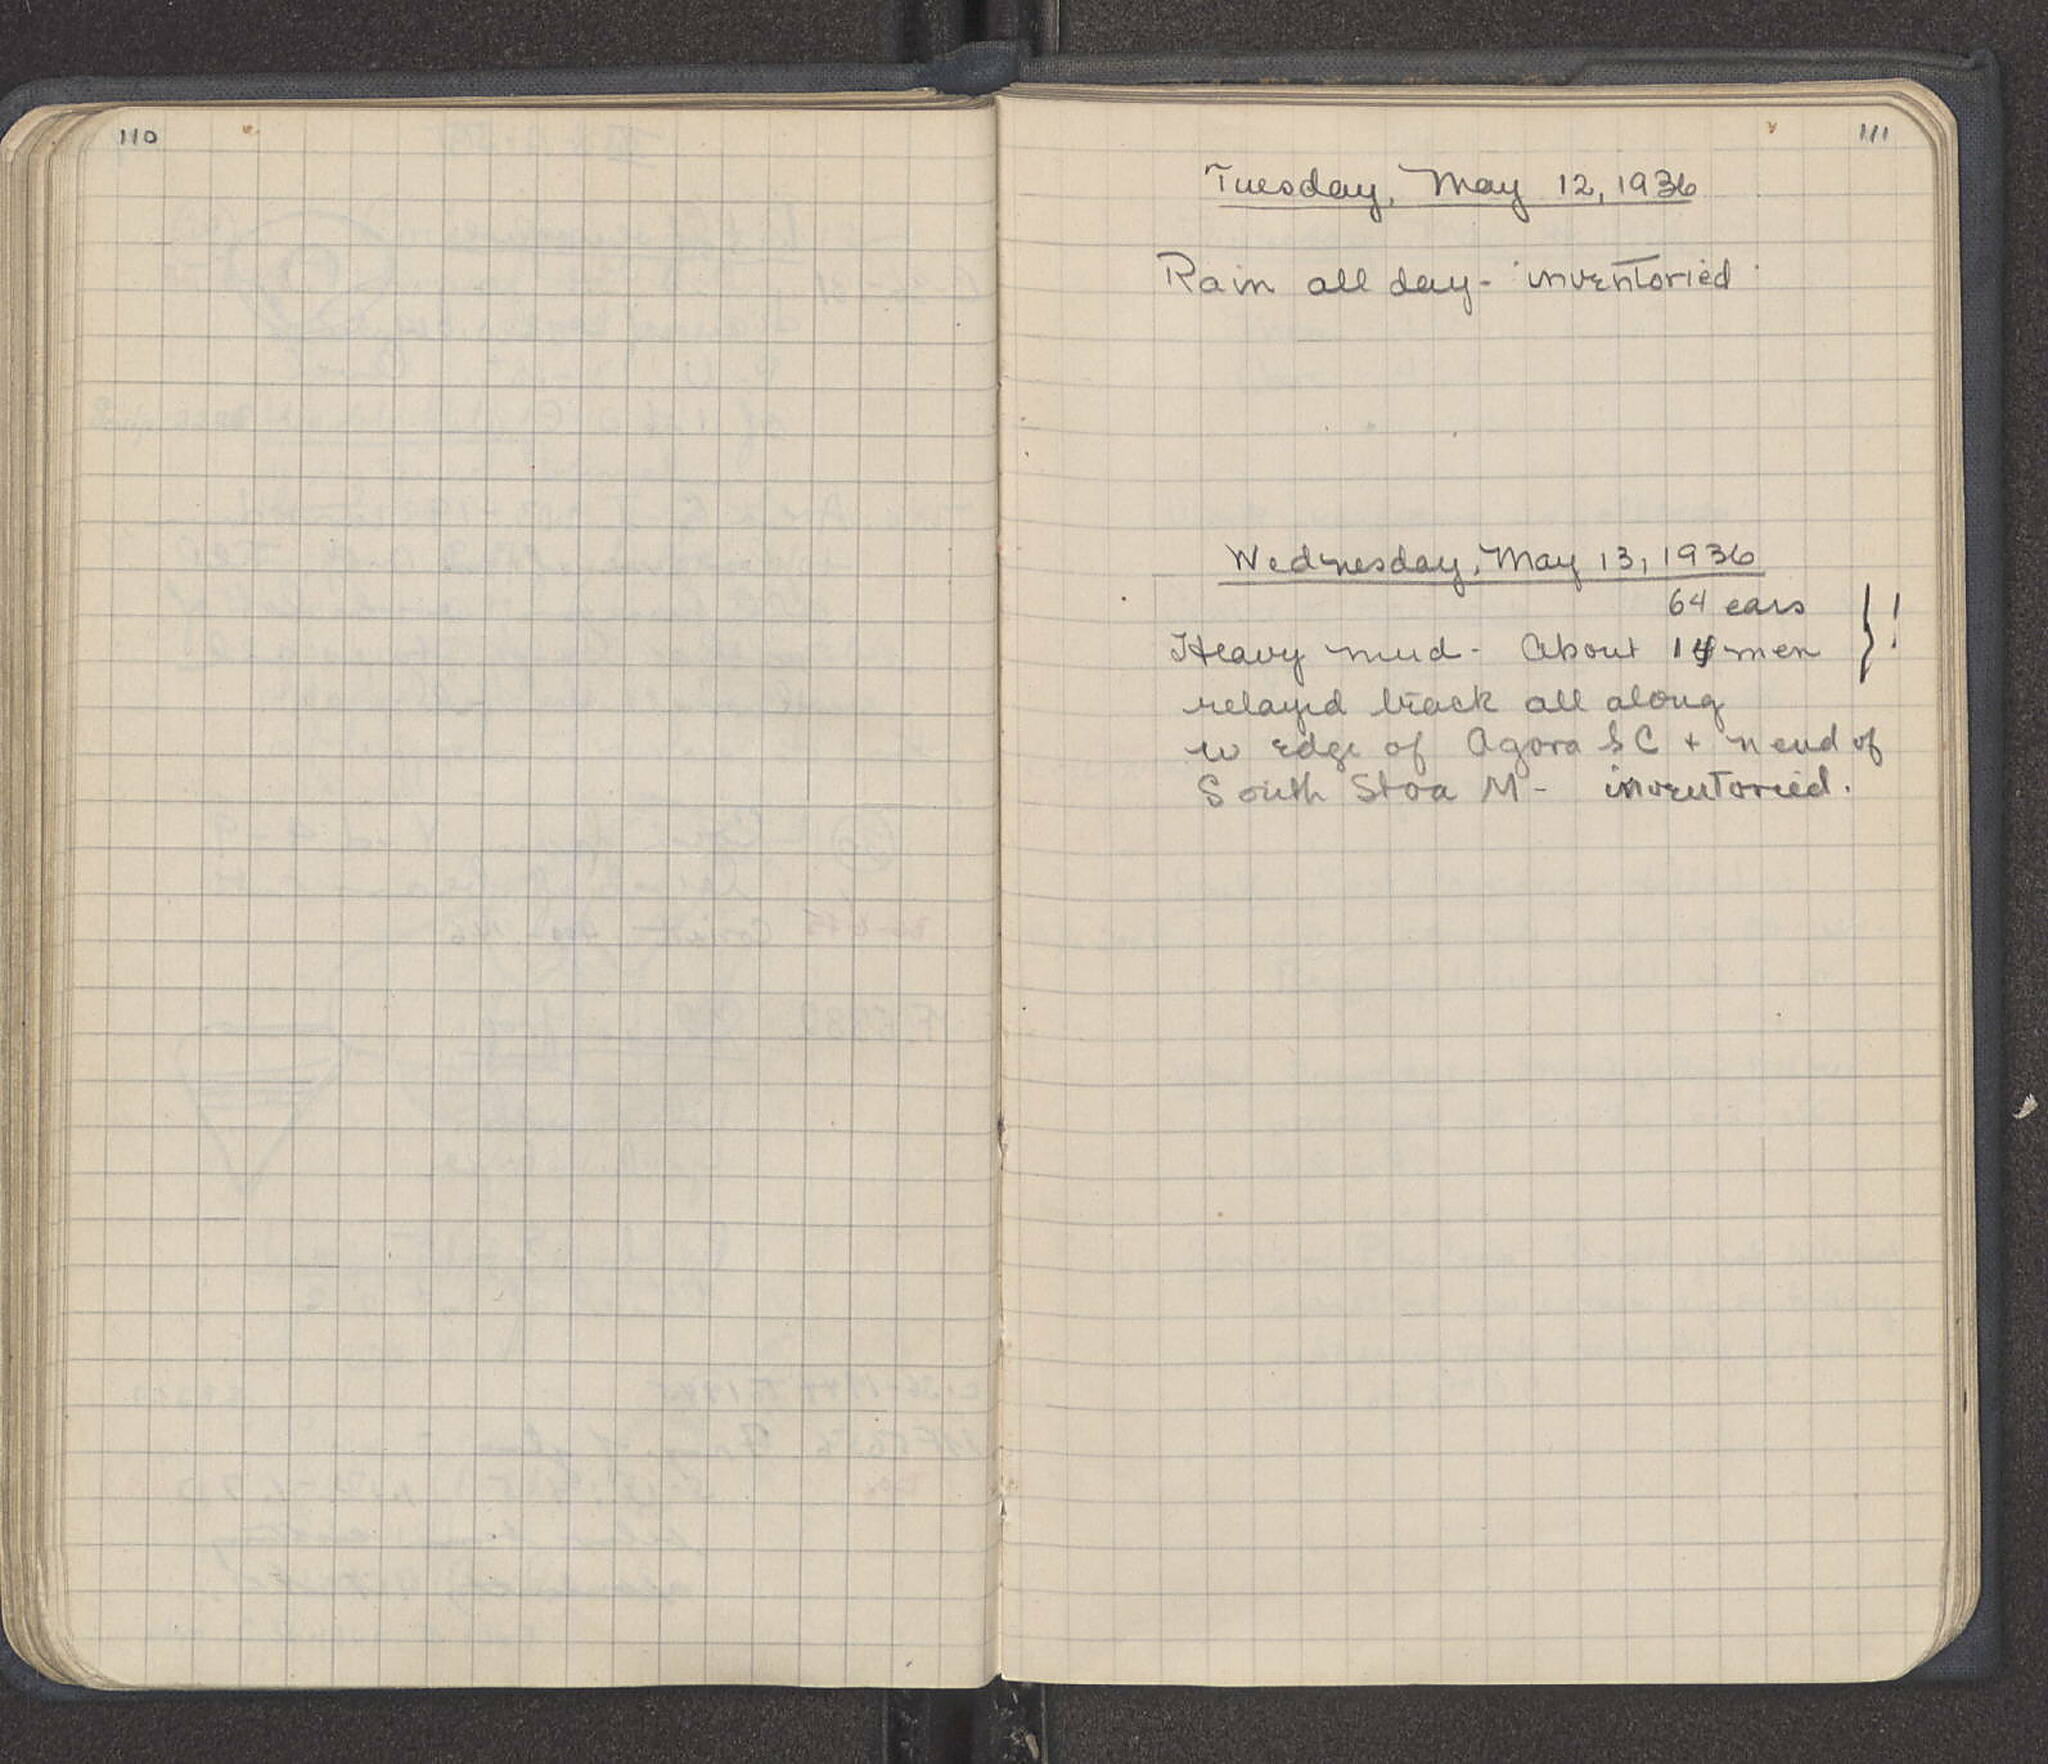 110
111
Tuesday, May 12, 1936
Rain all day - inventoried
Wednesday, May 13, 1936
64 cars } !
Heavy mud - About 14 men
relayed track all along
w edge of Agora SC + n end of
South Stoa M - inventoried.